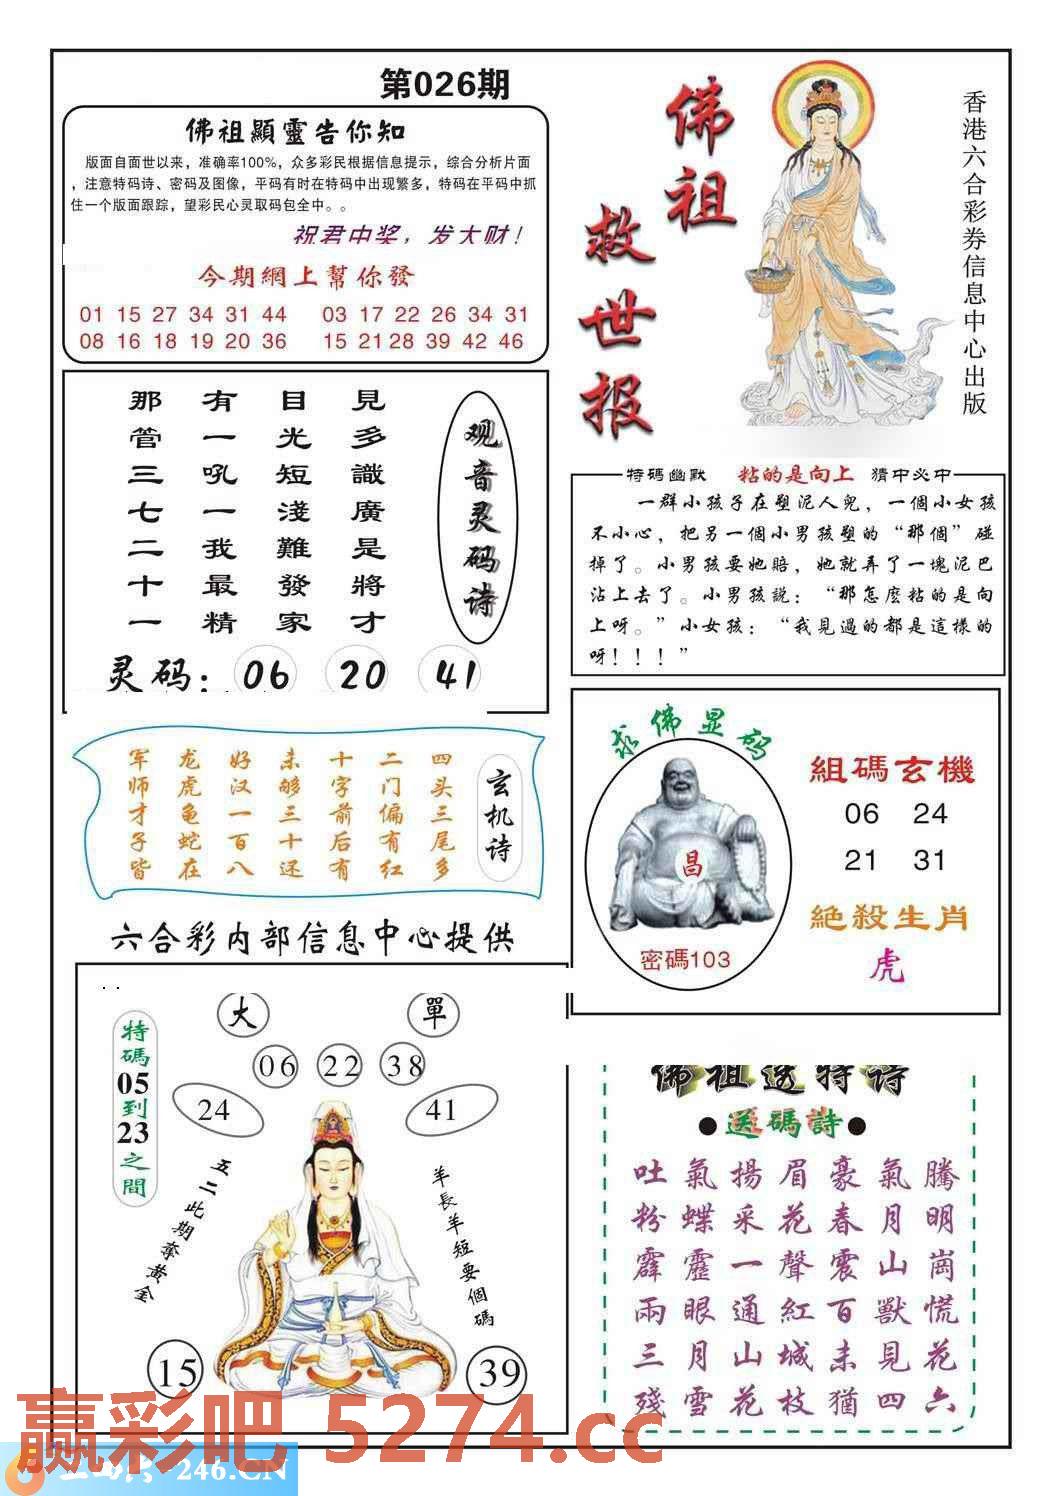 第026期
佛祖顯靈告你知
版面自面世以来，准确率100%，众多彩民根据信息提示，综合分析片面
，注意特码诗、密码及图像，平码有时在特码中出现繁多，特码在平码中抓
住一个版面跟踪，望彩民心灵取码包全中。。
祝君中奖，发大财！
今期網上幫你發
01 15 27 34 31 44 03 17 22 26 34 31
08 16 18 19 20 36 15 21 28 39 42 46
佛祖
救世报
香港六合彩券信息中心出版
观音灵码诗
見多識廣是將才
目光短淺難發家
有一吼一我最精
那管三七二十一
灵码：06 20 41
特碼幽默 粘的是向上 猜中必中
一群小孩子在塑泥人兒，一個小女孩
不小心，把另一個小男孩塑的“那個”碰
掉了。小男孩要她賠，她就弄了一塊泥巴
沾上去了。小男孩説：“那怎麽粘的是向
上呀。”小女孩：“我見過的都是這樣的
呀！！！”
玄机诗
四头三尾多
二门偏有红
十字前后有
未够三十还
好汉一百八
龙虎龟蛇在
军师才子皆
求佛显码
昌
密碼103
組碼玄機
06 24
21 31
絶殺生肖
虎
六合彩内部信息中心提供
大 單
06 22 38
24 41
特碼05到23之間
五二此期奪黄金
羊長羊短要個碼
15 39
佛祖送特诗
●送碼詩●
吐氣揚眉豪氣騰
粉蝶采花春月明
霹靂一聲震山崗
兩眼通紅百獸慌
三月山城未見花
殘雪花枝猶四六
赢彩吧 5274.cc
246.CN